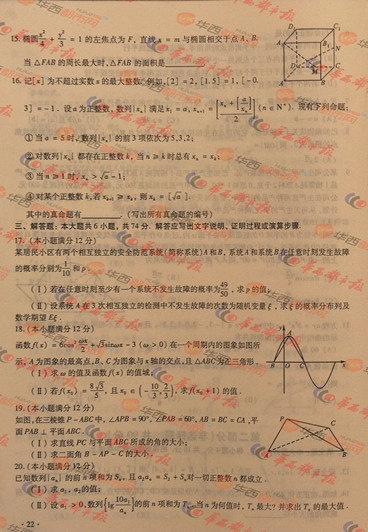 15. 椭圆x²/4 + y²/3 = 1 的左焦点为 F, 直线 x = m 与椭圆相交于点 A、B.
当 △FAB 的周长最大时,△FAB 的面积是
16. 记[x]为不超过实数x的最大整数.例如,[2] = 2,[1.5] = 1,[-0.
3] = -1. 设a为正整数,数列{xₙ}满足x₁ = a, xₙ₊₁ = [(xₙ + [a/xₙ])/2] (n∈N*). 现有下列命题:
①当 a = 5 时,数列{xₙ}的前3项依次为5,3,2;
②对数列{xₙ}都存在正整数k,当 n ≥ k 时总有 xₙ = xₖ;
③当 n ≥ 1 时, xₙ > √a - 1;
④对某个正整数k,若 xₖ₊₁ ≥ xₖ, 则 xₖ = [√a].
其中的真命题有 (写出所有真命题的编号)
三、解答题:本大题共6小题,共74分.解答应写出文字说明,证明过程或演算步骤.
17. (本小题满分12分)
某居民小区有两个相互独立的安全防范系统(简称系统)A和B,系统A和系统B在任意时刻发生故障
的概率分别为 1/10 和 p.
(Ⅰ)若在任意时刻至少有一个系统不发生故障的概率为49/50, 求p的值;
(Ⅱ)设系统A在3次相互独立的检测中不发生故障的次数为随机变量ξ, 求ξ的概率分布列及
数学期望Eξ.
18. (本小题满分12分)
函数f(x) = 6cos²ωx/2 + √3sinωx - 3 (ω > 0) 在一个周期内的图象如图所
示, A为图象的最高点,B、C为图象与x轴的交点,且△ABC为正三角形.
(Ⅰ)求ω的值及函数f(x)的值域;
(Ⅱ)若f(x₀) = 8√3/5, 且x₀∈(-10/3, 2/3), 求f(x₀ + 1)的值.
19. (本小题满分12分)
如图,在三棱锥P-ABC中,∠APB = 90°,∠PAB = 60°,AB = BC = CA,平
面PAB⊥平面ABC.
(Ⅰ)求直线PC与平面ABC所成的角的大小;
(Ⅱ)求二面角B-AP-C的大小.
20. (本小题满分12分)
已知数列{aₙ}的前n项和为Sₙ,且a₂aₙ = S₂ + Sₙ对一切正整数n都成立.
(Ⅰ)求a₁, a₂的值;
(Ⅱ)设a₁ > 0,数列{lg 10a₁/aₙ}的前n项和为Tₙ.当n为何值时,Tₙ最大? 并求出Tₙ的最大值.
· 22 ·
华西都市报
华西都市网